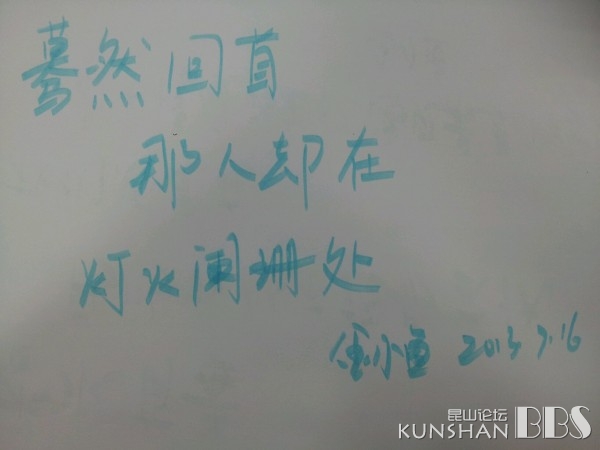 蓦然回首
那人却在
灯火阑珊处
金小鱼 2013 7.16
昆山论坛
KUNSHAN BBS